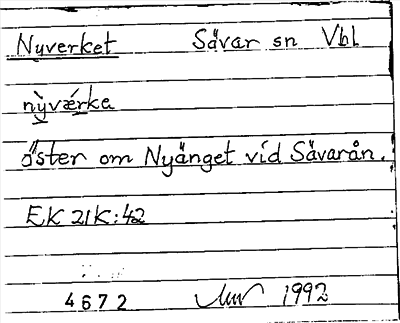 Nyverket Sävar sn Vbl
nỳvǽrke
öster om Nyänget vid Sävarån.
EK 21K:42
4672 1992